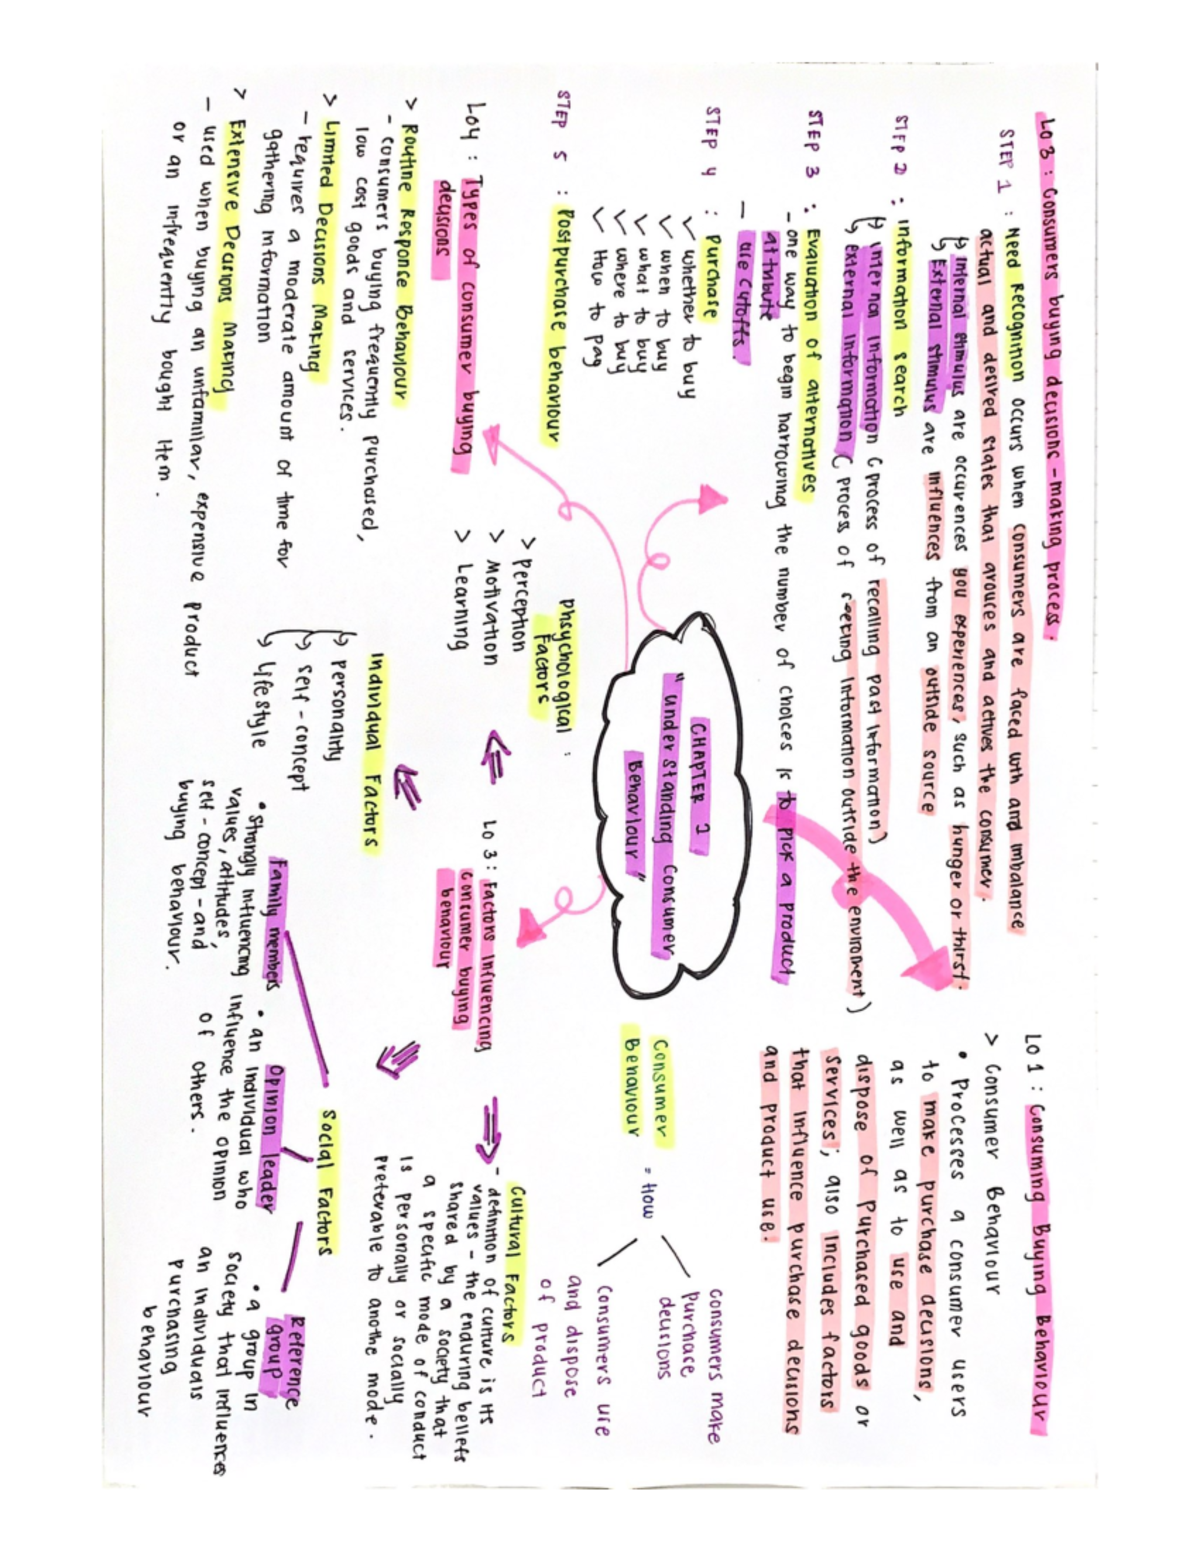 LO 3 : Consumers buying decisions - making process.
STEP 1 : Need Recognition occurs when consumers are faced wth and imbalance
actual and desired states that arouces and actives the consumer.
Internal stimulus are occurrences you experiences, such as hunger or thirst.
External stimulus are influences from an outside source
STEP 2 : information search
internal information ( process of recalling past information)
external information ( process of seeking information outside the enviroment)
STEP 3 : Evaluation of alternatives
- one way to begin narrowing the number of choices is to pick a product
attribute
- use cutoffs.
STEP 4 : Purchase
✓ whether to buy
✓ when to buy
✓ what to buy
✓ where to buy
✓ How to pay
STEP 5 : Postpurchase behaviour
LO4 : Types of consumer buying
decisions
> Routine Responce Behaviour
- consumers buying frequently purchased,
low cost goods and services.
> Limited Decisions Making
- requires a moderate amount of time for
gathering information
> Extensive Decisions Making
- used when buying an unfamiliar, expensive product
or an infrequently bought item.
CHAPTER 2
"understanding Consumer
Behaviour"
LO 1 : Consuming Buying Behaviour
> Consumer Behaviour
• Processes a consumer users
to make purchase decisions,
as well as to use and
dispose of purchased goods or
services; also includes factors
that influence purchase decisions
and product use.
Consumer
Behaviour
= How
consumers make
purchace
decisions
Consumers use
and dispose
of product
LO 3 : Factors influencing
consumer buying
behaviour
Phsychological :
Factors
> Perception
> Motivation
> Learning
Individual Factors
personality
self - concept
lifestyle
Cultural Factors
- definition of culture is its
values - the enduring beliefs
shared by a society that
a specific mode of conduct
is personally or socially
preterable to anothe mode.
Social Factors
Family members
• strongly influencing
values, attitudes,
self - concept - and
buying behaviour.
Opinion leader
• an individual who
influence the opinion
of others.
Reference
group
• a group in
society that influences
an individuals
purchasing
behaviour